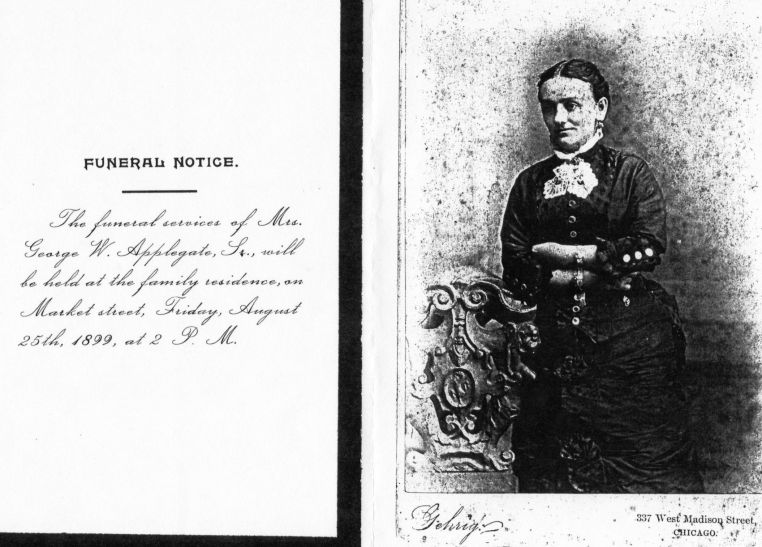 FUNERAL NOTICE.
The funeral services of Mrs.
George W. Applegate, Sr., will
be held at the family residence, on
Market street, Friday, August
25th, 1899, at 2 P. M.
Gehrig
337 West Madison Street,
CHICAGO.